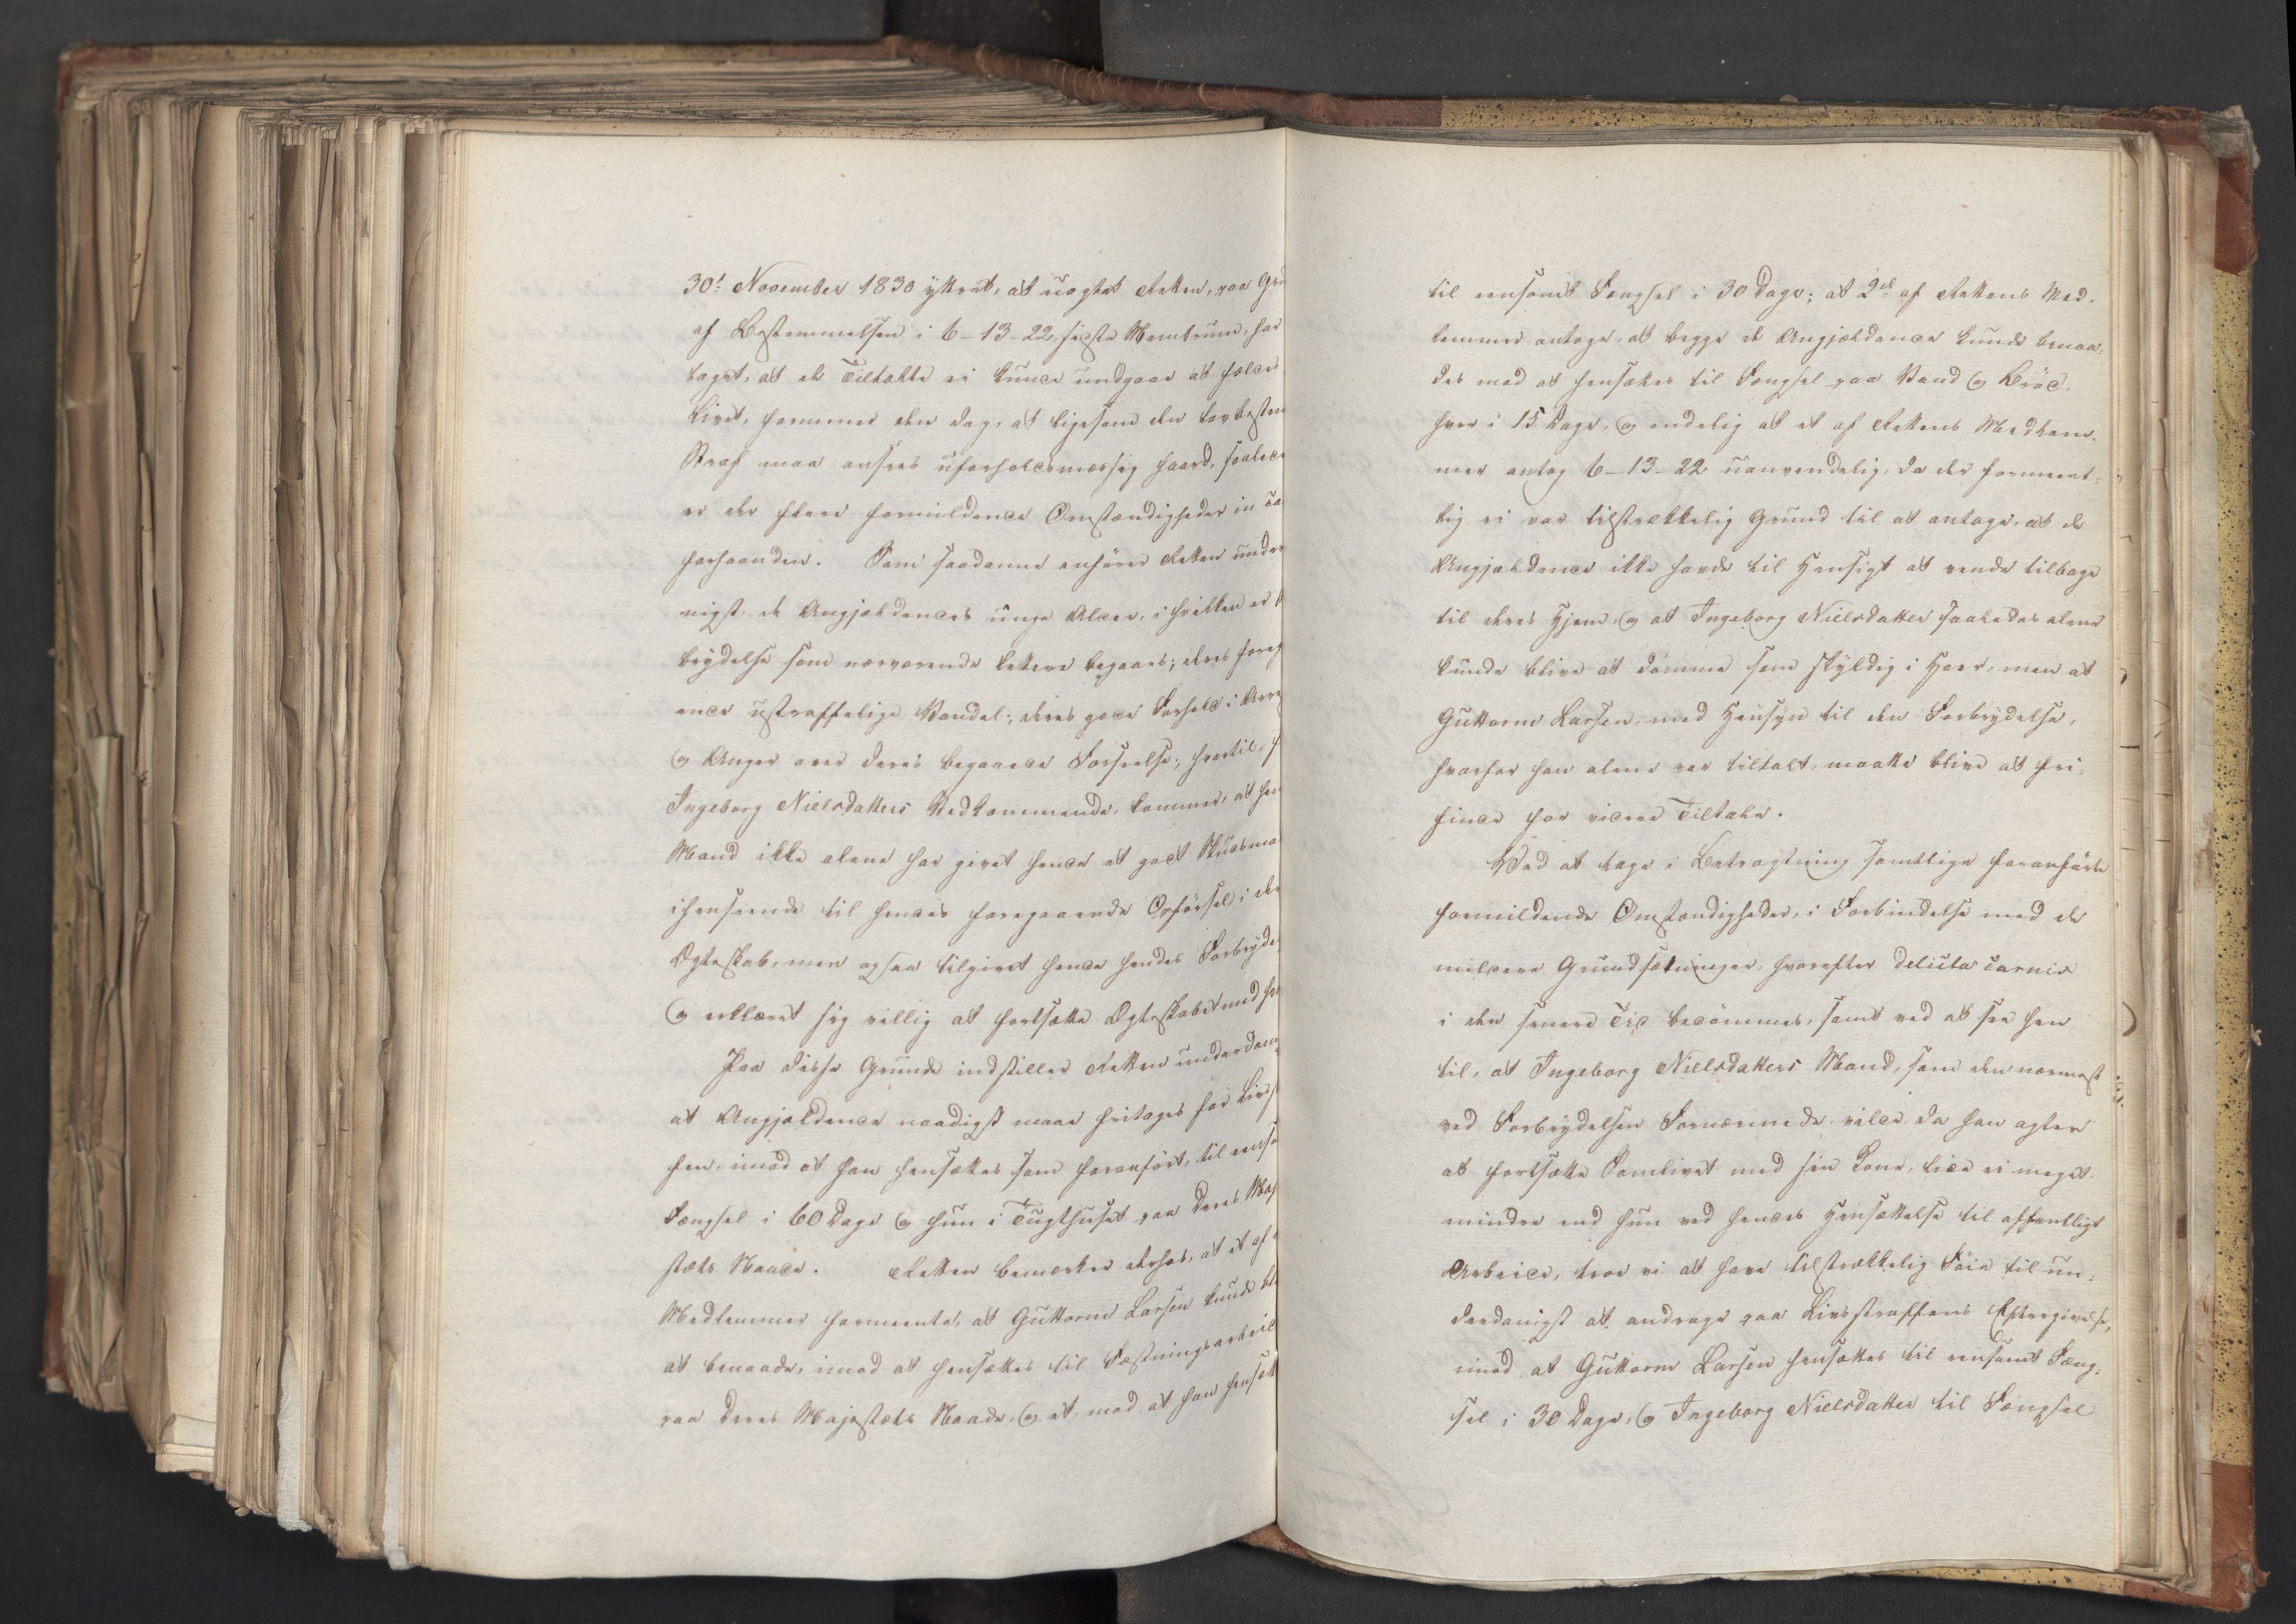 30te November 1830 yttret, at uagtet Retten, paa Gru
af Bestemmelsen i 6-13-22, sidste Membrum, har
taget, at de Tiltalte ei kunde undgaae at fældes
Livet, formener den dog, at ligesom den lovbestem
Straf maa ansees uforholdsmæssig haard, saalede
er der flere formildende Omstændigheder in ca
forhaanden. Som saadanne anfører Retten under
nigst de Angjældendes unge Alder, i hvilken er
brydelse som nærværende lettere begaaes; deres foreg
ende ustraffelige Vandel; deres gode Forhold i Arre
og Anger over deres begaaede Forseelse; hvortil, f
Ingeborg Nielsdatters Vedkommende, kommer, at hen
Mand ikke alene har givet hende et godt Skudsmaa
ihenseende til hendes foregaaende Opførsel i de
Ægteskab, men ogsaa tilgivet hende hendes Forbryde
og erklæret sig villig at fortsætte Ægteskabet med he
Paa disse Grunde indstiller Retten underdan
at Angjældende naadigst maae fritages for Livs
fen, imod at han hensættes som foranført, til eenso
Fængsel i 60 Dage og hun i Tugthuset paa Deres Maj
stæts Naade. Retten bemærker derhos, at et af
Medlemmer formeente, at Guttorm Larsen kunde bl
at benaade, imod at hensættes til Fæstningsarbeid
paa Deres Majestæts Naade, og et, mod at han hensætt
til eensomt Fængsel i 30 Dage; at 2de af Rettens Med-
lemmer antoge, at begge de Angjældende kunde benaa-
des mod at hensættes til Fængsel paa Vand og Brød,
hver i 15 Dage, og endelig at et af Rettens Medlem-
mer antog 6-13-22 uanvendelig, da der formeent-
lig ei var tilstrækkelig Grund til at antage, at de
Angjældende ikke havde til Hensigt at vende tilbage
til deres Hjem, og at Ingeborg Nielsdatter saaledes alene
kunde blive at dømme som skyldig i Hoer, men at
Guttorm Larsen, med Hensyn til den Forbrydelse,
hvorfor han alene var tiltalt, maatte blive at fri-
finde for videre Tiltale.
Ved at tage i Betragtning samtlige foranførte
formildende Omstændigheder, i Forbindelse med de
mildere Grundsætninger, hvorefter delicta carnis
i den senere Tid bedømmes, samt ved at see hen
til, at Ingeborg Nielsdatters Mand, som den nærmest
ved Forbrydelsen Fornærmede vilde da han agter
at fortsætte Samlivet med sin Kone, lide ei meget
mindre end hun ved hendes Hensættelse til offentligt
Arbeide, troe vi at have tilstrækkelig Føie til un-
derdanigst at andrage paa Livsstraffens Eftergivelse,
imod at Guttorm Larsen hensættes til eensomt Fæng-
sel i 30 Dage, og Ingeborg Nielsdatter til Fængsel